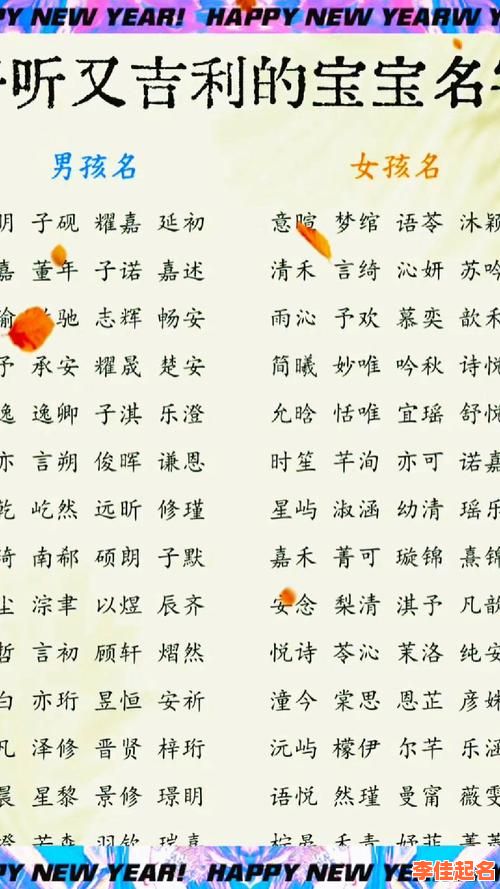 PY NEW YEAR! HAPPY NEW YEARW NEW Y
听又吉利的宝宝名
男孩名 女孩名
明 子砚 耀嘉 延初 意暄 梦绾 语苓 沐颖
嘉 董年 子诺 嘉述 清禾 言绮 沁妍 苏吟
瑜 驰 志辉 畅安 雨沁 予欢 慕奕 歆禾
予 承安 耀晟 楚安 简曦 妙唯 吟秋 诗悦
逸 逸卿 子淇 乐澄 允晗 恬唯 宜瑶 舒悦
亦 言朔 俊晖 谦恩 时笙 芊洵 亦可 诺嘉
乾 屹然 远昕 修瑾 星屿 淑涵 幼清 瑶乐
南郗 硕朗 子默 嘉禾 菁可 璇锦 熹锦
尘 淙聿 以煜 辰齐 安念 梨清 淇予 凡韵
哲 言初 顾轩 熠然 悦诗 苓沁 茉洛 纯安
白 亦珩 昱恒 安祈 潼今 棠思 恩芷 彦娴
凡 泽修 晋贤 梓珩 沅屿 檬伊 尔芊 乐涵
晨 星黎 景修 璟明 语悦 然瑾 曼甯 薇雯
澄 若森 羽钦 瑞熹
PY NEW YEAR! HAPPY NEW YEAR!
李佳起名